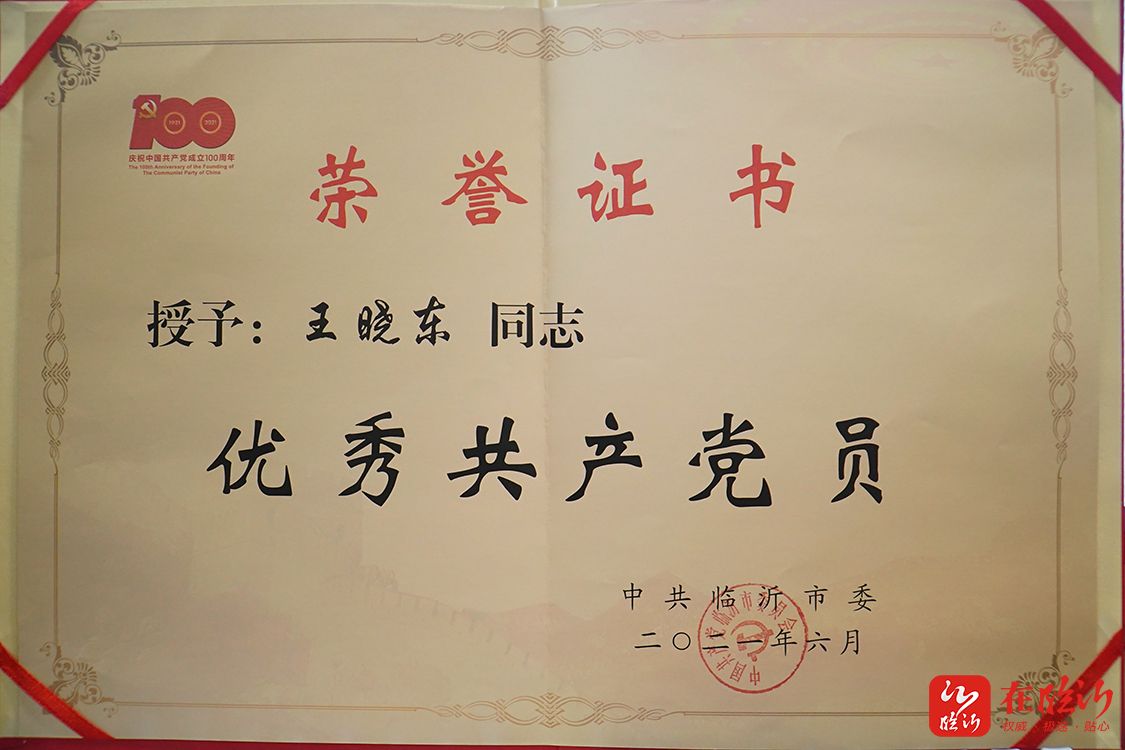 100
1921 2021
庆祝中国共产党成立100周年
The 100th Anniversary of the Founding of
The Communist Party of China
荣誉证书
授予：王晓东 同志
优秀共产党员
中共临沂市委
二〇二一年六月
中国共产党临沂市委员会
临沂
在临沂
权威·极速·贴心